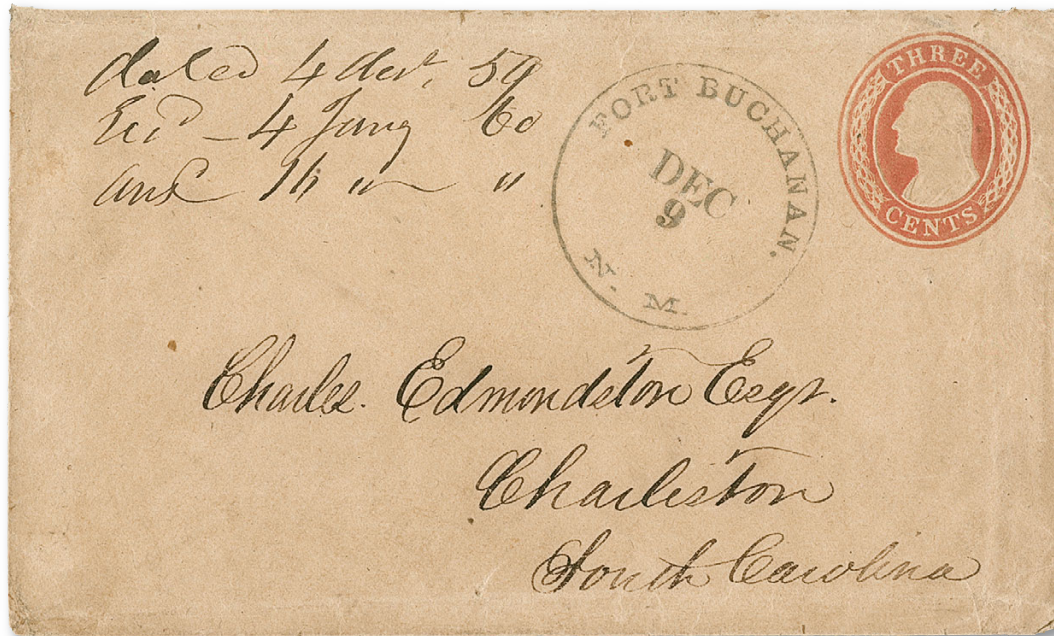 dated 4 decr. 59
Recd – 4 Jany 60
ansd 16 " "
FORT BUCHANAN.
DEC
9
N. M.
THREE
CENTS
Charles. Edmondston Esqr.
Charleston
South Carolina